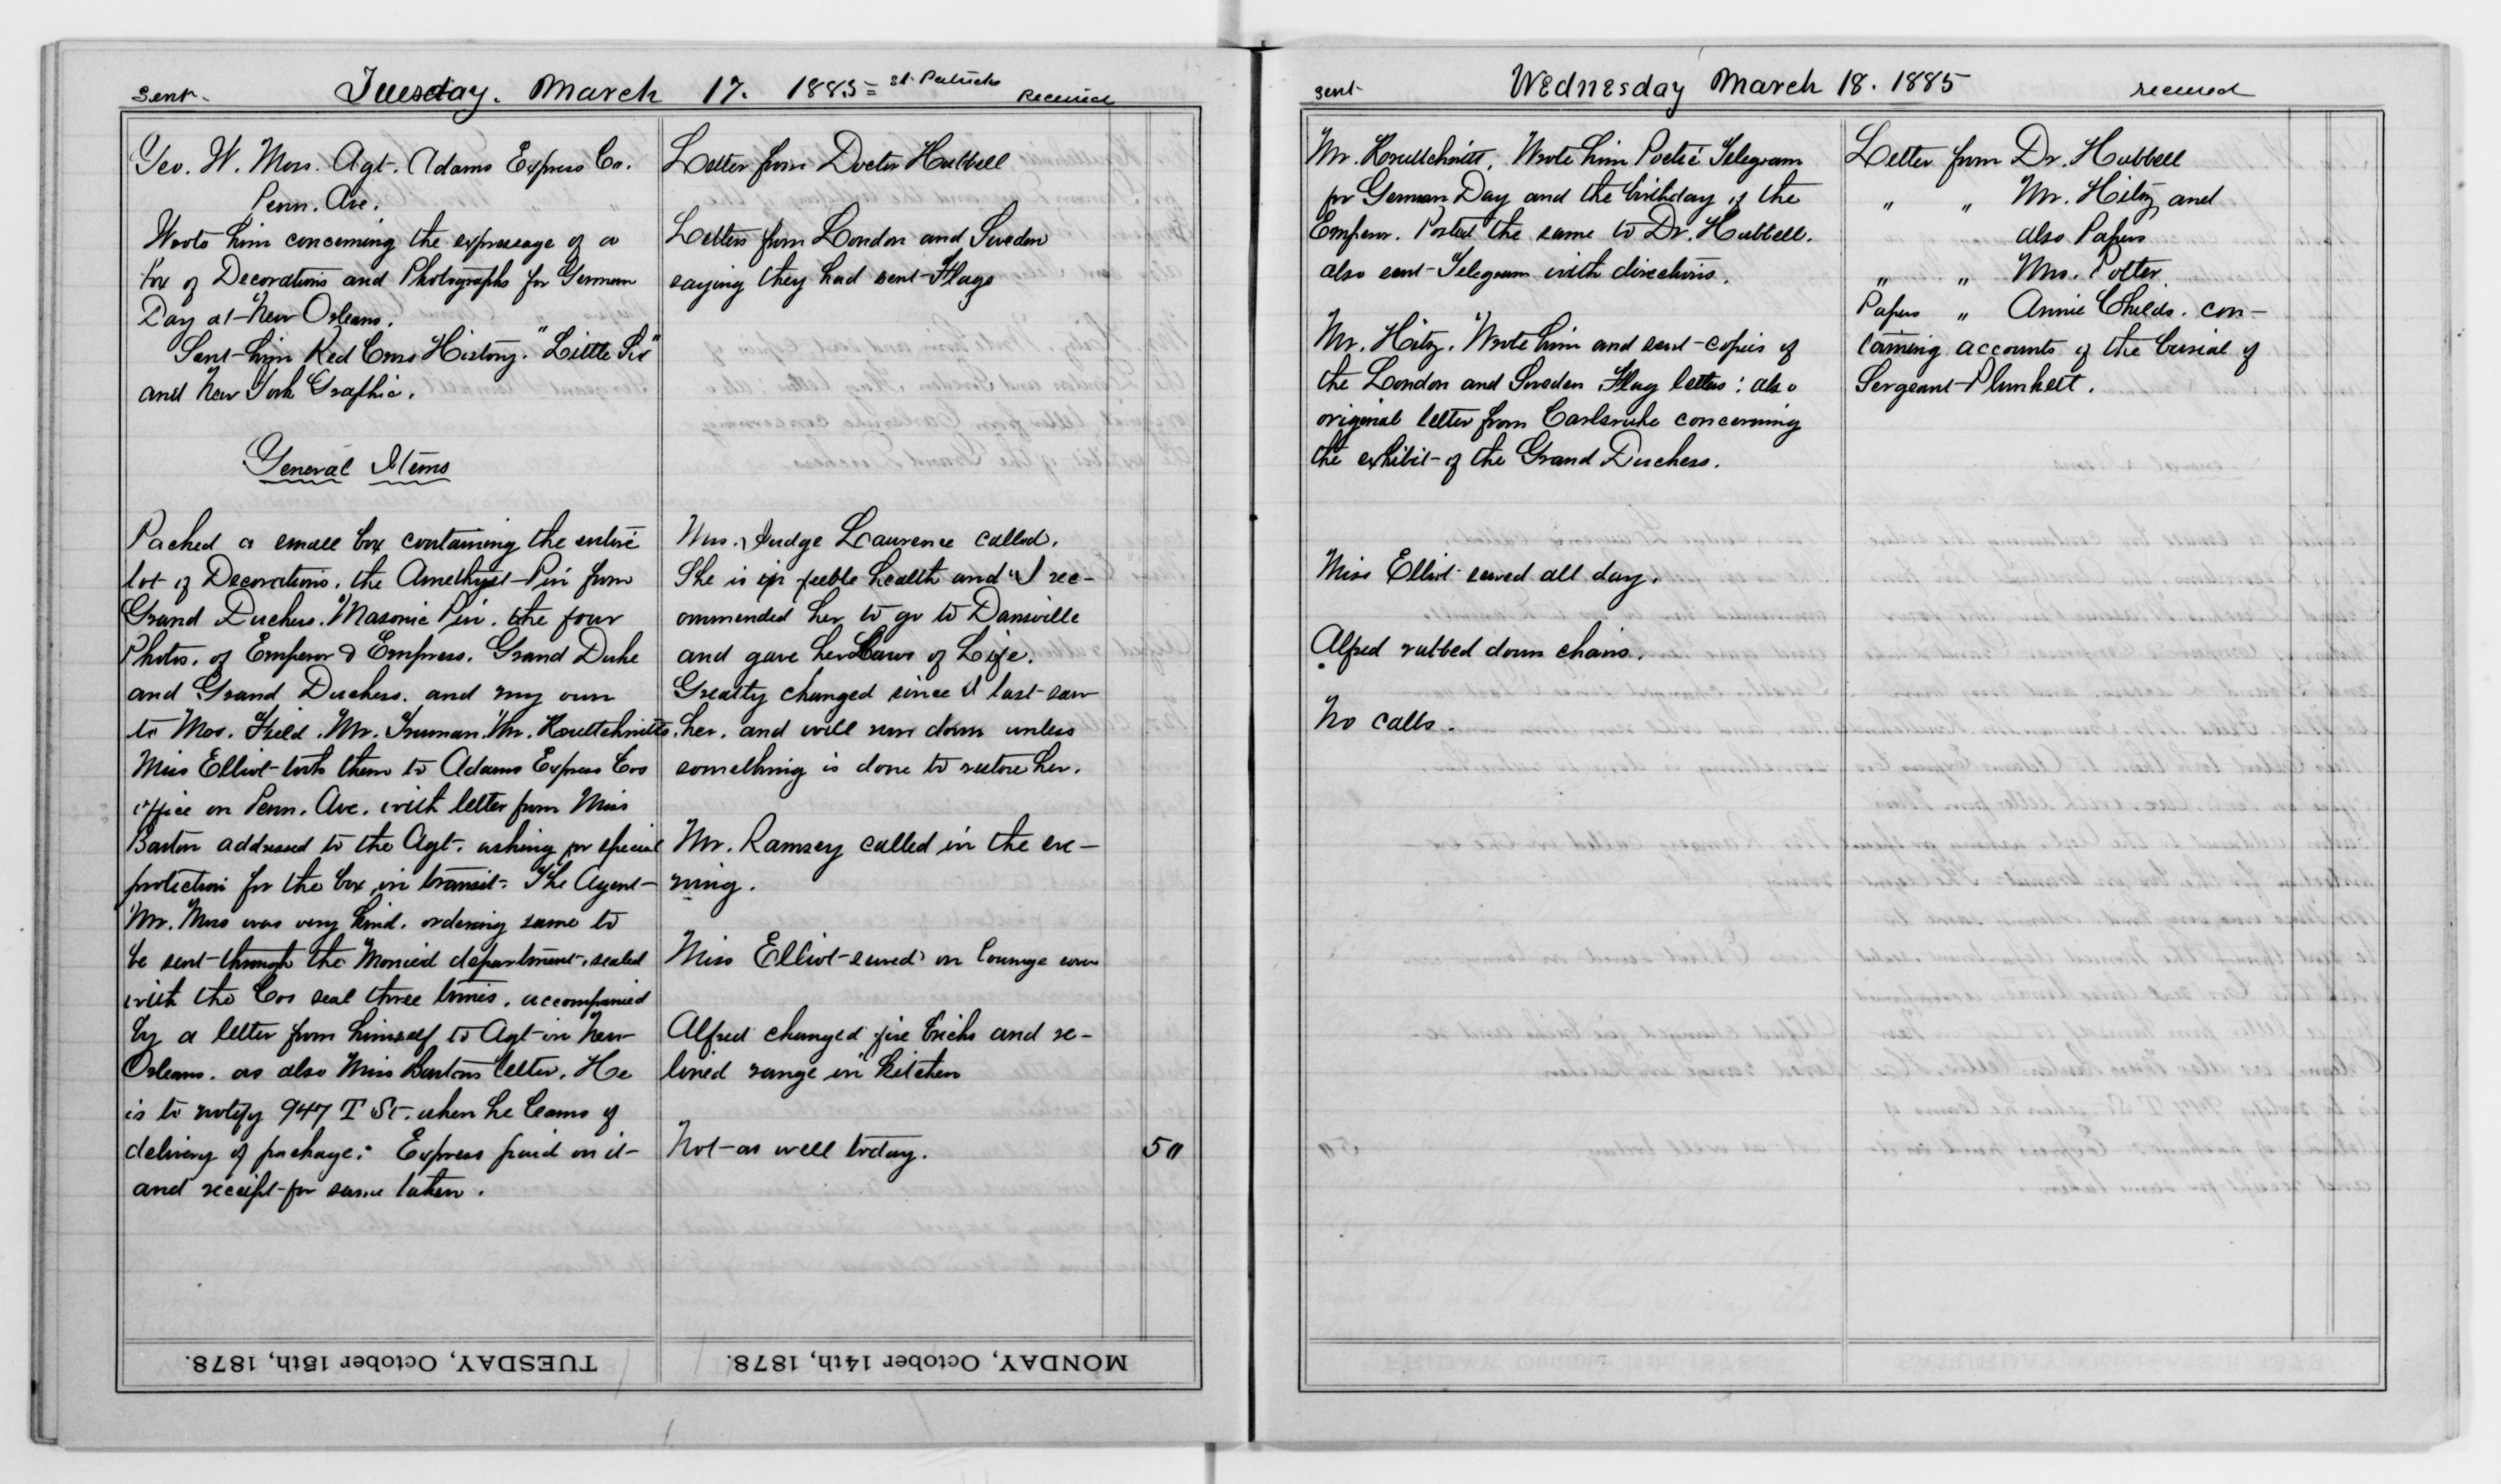 Sent-
Tuesday. March 17. 1885 = St. Patricks
Received
Geo. W. Moss. Agt. Adams Express Co.
Penn. Ave.
Wrote him concerning the expressage of a
box of Decorations and Photographs for German
Day at New Orleans.
Sent him Red Cross History. "Little Six"
and New York Graphic.
General Items
Packed a small box containing the entire
lot of Decorations. the Amethyst Pin from
Grand Duchess. Masonic Pin. the four
Photos. of Emperor & Empress. Grand Duke
and Grand Duchess. and my own
to Mos. Field. Mr. Truman. Mr. Kruttchnitts.
Miss Elliot took them to Adams Express Cos
office on Penn. Ave. with letter from Miss
Barton addressed to the Agt. asking for special
protection for the box in transit. The Agent
Mr. Moss was very kind. ordering same to
be sent through the Monied department, sealed
with the Cos seal three times. accompanied
by a letter from himself to Agt in New
Orleans. as also Miss Bartons letter. He
is to notify 947 T St. when he learns of
delivery of package. Express paid on it
and receipt for same taken.
Letter from Doctor Hubbell
Letters from London and Sweden
saying they had sent Flags
Mrs. Judge Laurence called.
She is in feeble health and I rec-
ommended her to go to Dansville
and gave her Laws of Life.
Greatly changed since I last saw
her. and will run down unless
something is done to restore her.
Mr. Ramsey called in the eve-
ning.
Miss Elliot sewed on lounge cover
Alfred changed fire bricks and re-
lined range in kitchen
Not as well today.
50
MONDAY, October 14th, 1878.
TUESDAY, October 15th, 1878.
sent
Wednesday March 18. 1885
received
Mr. Kruttchnitt. Wrote him Poetic Telegram
for German Day and the birthday of the
Emperor. Posted the same to Dr. Hubbell.
also sent Telegram with directions.
Mr. Hitz. Wrote him and sent copies of
the London and Sweden Flag letters: also
original letter from Carlsruhe concerning
the exhibit of the Grand Duchess.
Miss Elliot sewed all day.
Alfred rubbed down chairs.
No calls.
Letter from Dr. Hubbell
" " Mr. Hitz and
also Papers
" " Mrs. Potter
Papers " Annie Childs. con-
taining accounts of the burial of
Sergeant Plunkett.